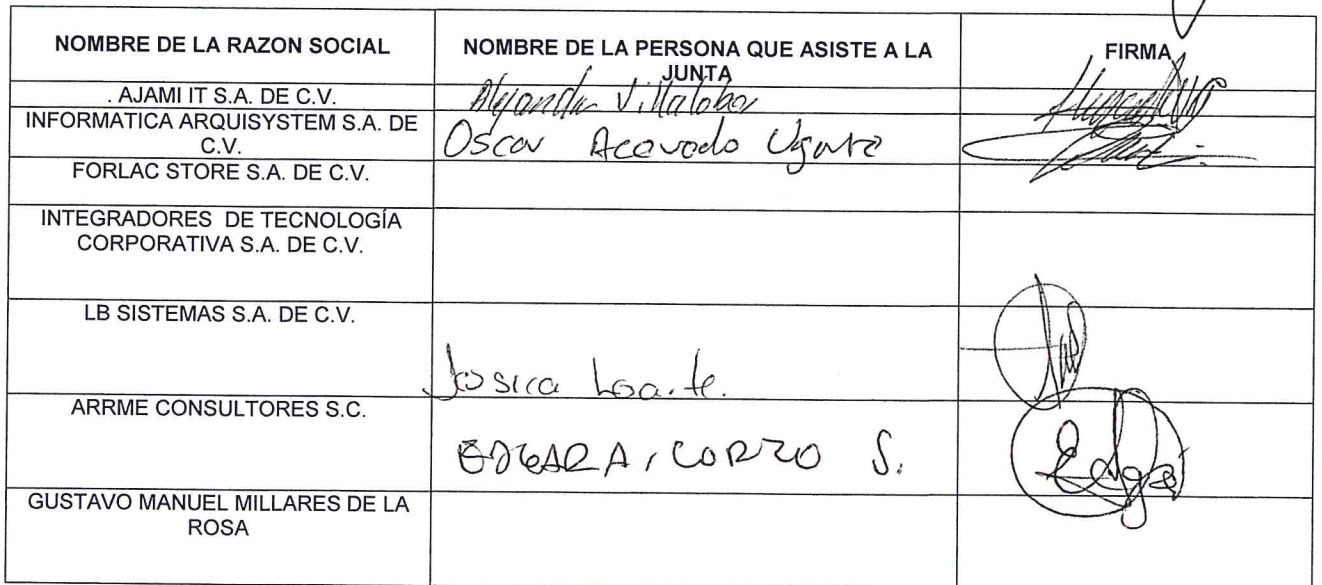 NOMBRE DE LA RAZON SOCIAL
NOMBRE DE LA PERSONA QUE ASISTE A LA
JUNTA
FIRMA
. AJAMI IT S.A. DE C.V.
Alejandro Villalobos
INFORMATICA ARQUISYSTEM S.A. DE
C.V.
Oscar Acevedo Ugarte
FORLAC STORE S.A. DE C.V.
INTEGRADORES DE TECNOLOGÍA
CORPORATIVA S.A. DE C.V.
LB SISTEMAS S.A. DE C.V.
ARRME CONSULTORES S.C.
EDGAR A. CORZO S.
Edga
GUSTAVO MANUEL MILLARES DE LA
ROSA